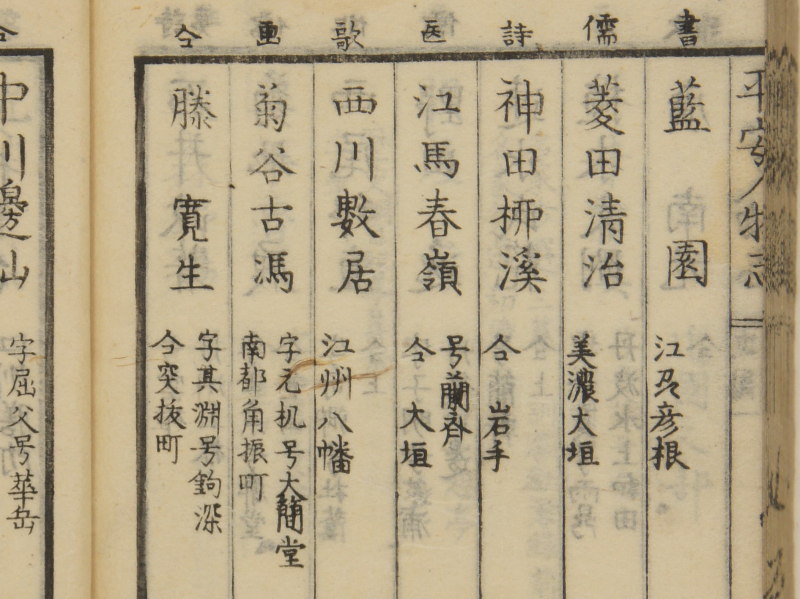 平安人物志
書
藍南園
江州彦根
儒
菱田清治
美濃大垣
詩
神田柳溪
仝 岩手
医
江馬春嶺
号蘭斎
仝 大垣
歌
西川數居
江州八幡
画
菊谷古馮
字元机号大簡堂
南都角振町
仝
滕寛生
字其淵号鉤深
仝突抜町
仝
中川邊山
字屈父号華岳